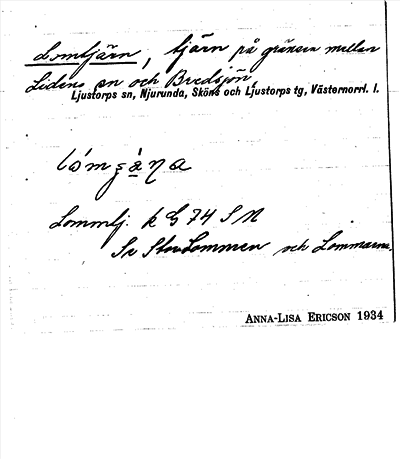 Lomtjärn, tjärn på gränsen mellan
Lidens sn och Bredsjön,
Ljustorps sn, Njurunda, Sköns och Ljustorps tg, Västernorrl. l.
Lommtj. k G 74 S N
Se Stor Lommen och Lommarna.
ANNA-LISA ERICSON 1934